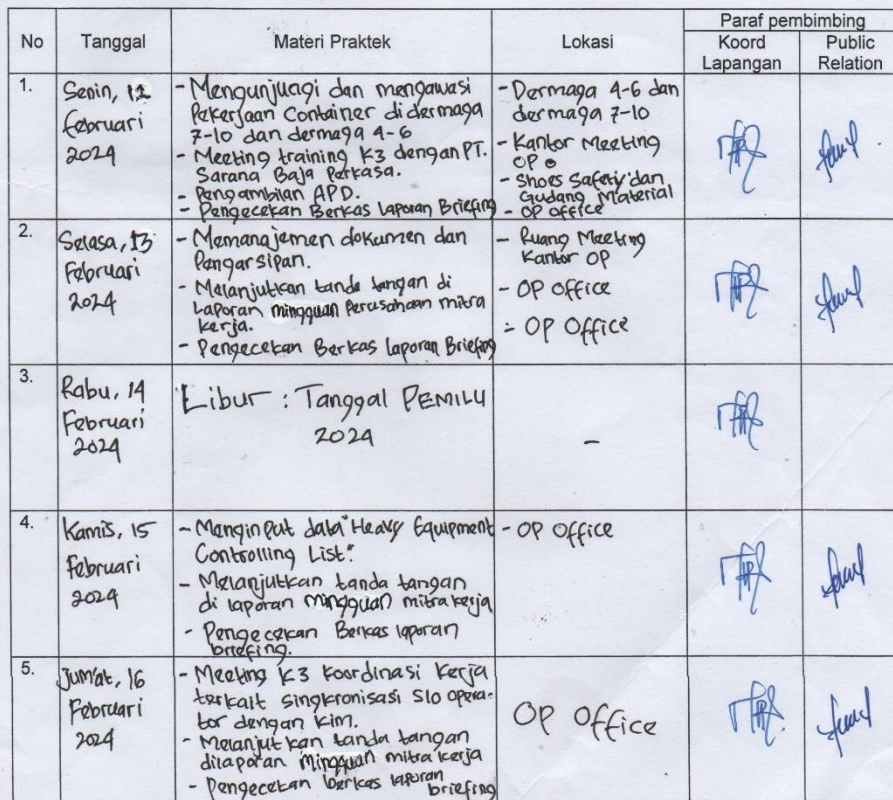 No Tanggal Materi Praktek Lokasi Paraf pembimbing
Koord Lapangan Public Relation
1.
Senin, 12
februari
2024
- Mengunjungi dan mengawasi
Pekerjaan Container di dermaga
7-10 dan dermaga 4-6
- Meeting training K3 dengan PT.
Sarana Baja Perkasa.
- Pengambilan APD.
- Pengecekan Berkas laporan Briefing
- Dermaga 4-6 dan
dermaga 7-10
- Kantor Meeting
OP
- Shoes Safety dan
Gudang Material
- OP office
2.
Selasa, 13
Februari
2024
- Memanajemen dokumen dan
Pengarsipan.
- Melanjutkan tanda tangan di
Laporan mingguan Perusahaan mitra
kerja.
- Pengecekan Berkas laporan Briefing
- Ruang Meeting
Kantor OP
- OP Office
- OP Office
3.
Rabu, 14
Februari
2024
Libur : Tanggal PEMILU
2024
-
4.
Kamis, 15
Februari
2024
- Menginput data "Heavy Equipment
Controlling List".
- Melanjutkan tanda tangan
di laporan mingguan mitra kerja
- Pengecekan Berkas laporan
briefing.
- OP Office
5.
Jum'at, 16
Februari
2024
- Meeting K3 Koordinasi Kerja
terkait singkronisasi SIO opera-
tor dengan kim.
- Melanjutkan tanda tangan
dilaporan mingguan mitra kerja
- Pengecekan berkas laporan
briefing
OP Office